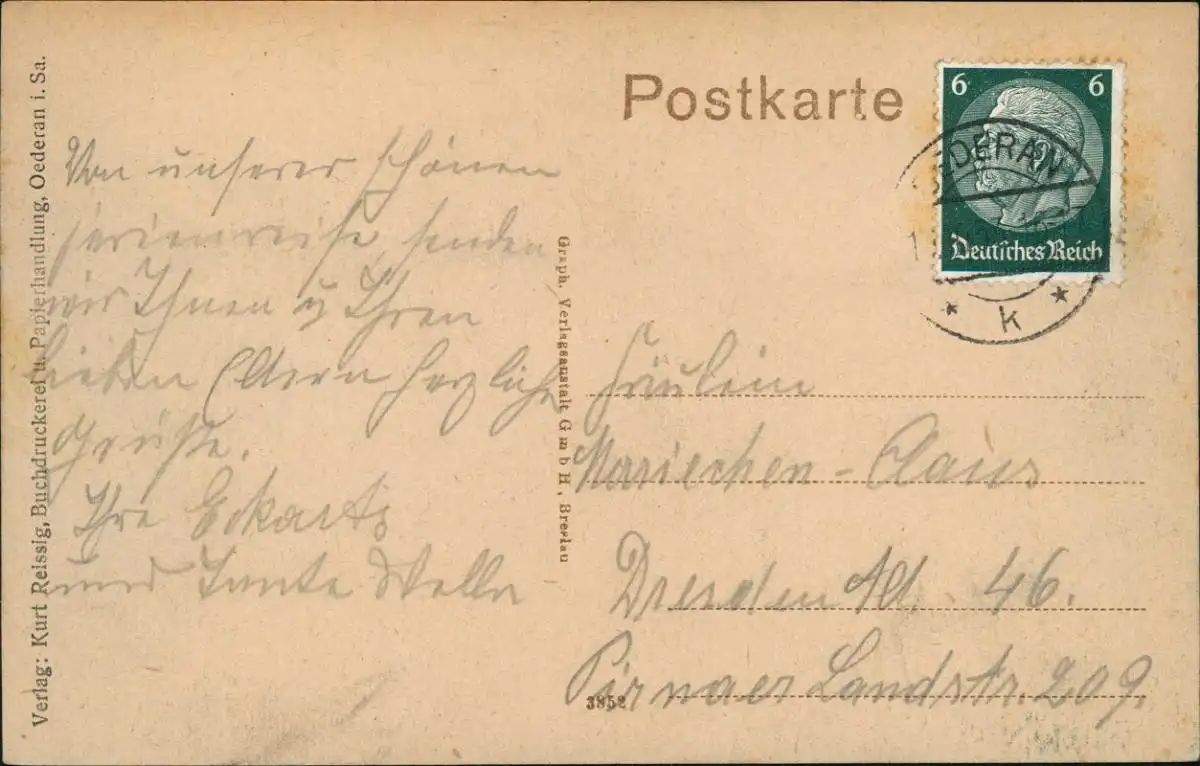 Verlag: Kurt Reissig, Buchdruckerei u. Papierhandlung, Oederan i. Sa.
Von unserer schönen
Ferienreise senden
wir Ihnen u Ihren
lieben Eltern herzliche
Grüße.
Ihre Eckarts
und Tante Wella
Graph. Verlagsanstalt GmbH, Breslau
Postkarte
6 6
Deutsches Reich
OEDERAN
k
Fräulein
Mariechen - Claus
Dresden A1. 46.
Pirnaer Landstr. 209.
3852